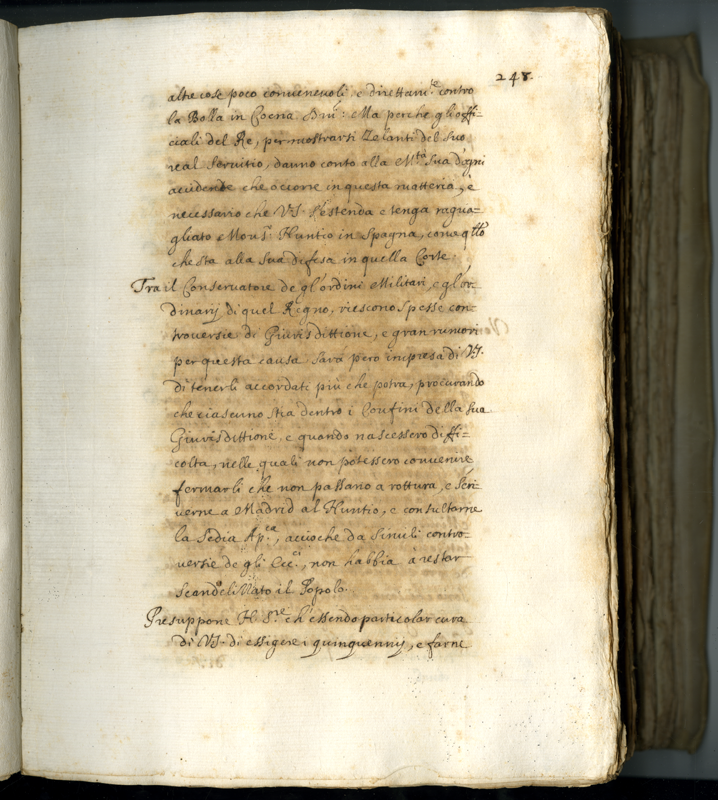 248.
altre cose poco convenevoli, e direttam.te contro
la Bolla in Coena Dni: Ma perche gli offi-
ciali del Re, per mostrarsi Zelanti del suo
real Servitio, danno conto alla M.tà Sua d'ogni
accidente che occorre in questa matteria, e
necessario che VS. s'estenda e tenga ragua-
gliato Mons.r Nuntio in Spagna, con aqllo
che sta alla sua difesa in quella Corte.
Tra il Conservatore de gl'ordini Militari, e gl'or-
dinarij di quel Regno, riescono spesse con-
troversie di Giurisdittione, e gran rumori
per questa causa. Sarà pero impresa di VS.
di tenerli accordati più che potra, procurando
che ciascuno stia dentro i Confini della sua
Giurisdittione, e quando nascessero diffi-
colta, nelle quali non potessero convenire
fermarli che non passario a rottura, e scri-
verne a Madrid al Nuntio, e consultarne
la Sedia Ap.ca, accioche da simili contro-
versie de gli Ecc.ci, non habbia à restar
scandelizzato il Popolo.
Presuppone N. S.re ch'essendo particolar cura
di VS. di essigere i quinquennij, e farne